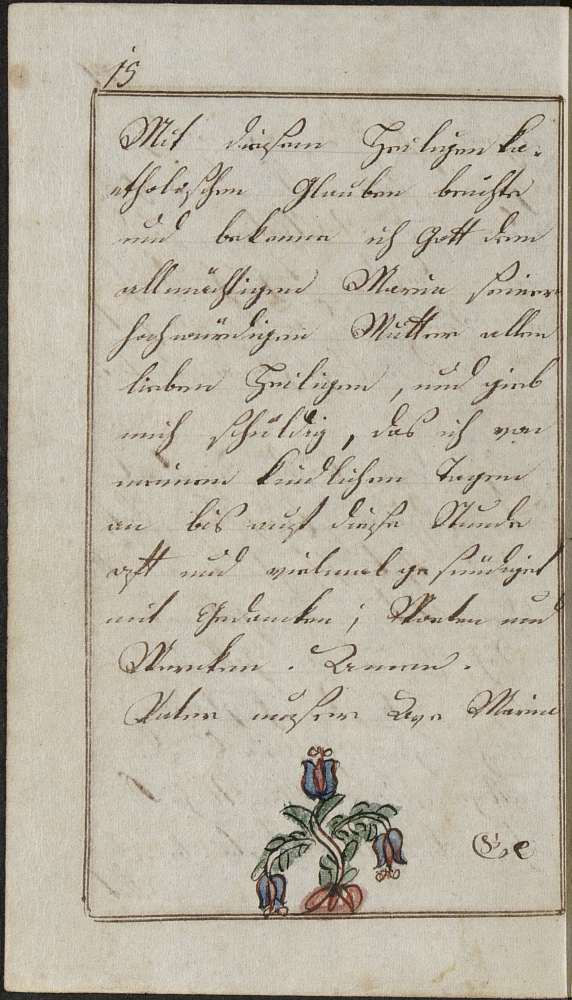 15
Mit diesem Heiligen ka-
atholischen Glauben beichte
und bekenne ich Gott dem
allmächtigen Maria seiner
hochwürdigen Mutter allen
lieben Heiligen, und gieb
mich schuldig, das ich von
meinen kindlichen Tagen
an bis auf diese Stunde
oft und vielmal gesündiget
mit Gedancken; Worten und
Wercken. Amen.
Vater unser Ave Maria